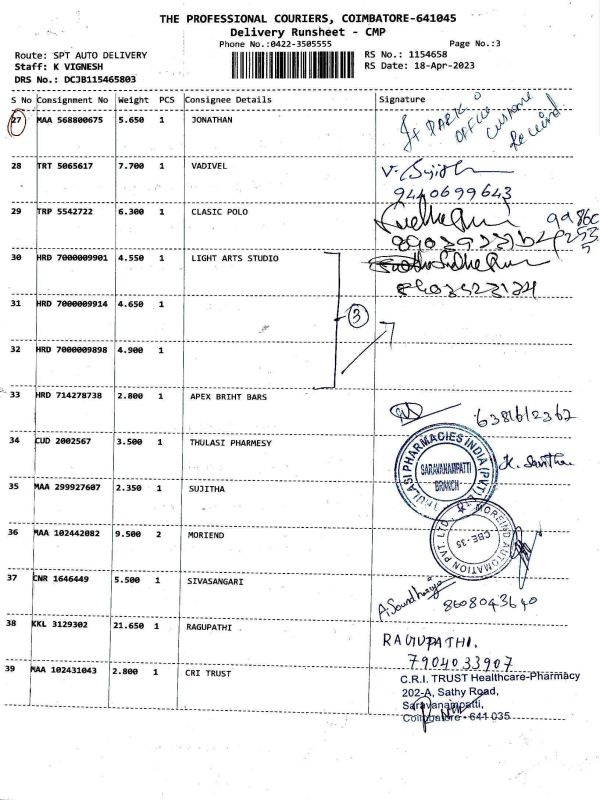 THE PROFESSIONAL COURIERS, COIMBATORE-641045
Delivery Runsheet - CMP
Phone No.:0422-3505555 Page No.:3
Route: SPT AUTO DELIVERY RS No.: 1154658
Staff: K VIGNESH RS Date: 18-Apr-2023
DRS No.: DCJB115465803
S No Consignment No Weight PCS Consignee Details Signature
27 MAA 568800675 5.650 1 JONATHAN
IT PARK
OFFICE
Customer
Received
28 TRT 5065617 7.700 1 VADIVEL
9440699643
29 TRP 5542722 6.300 1 CLASIC POLO
30 HRD 7000009901 4.550 1 LIGHT ARTS STUDIO
31 HRD 7000009914 4.650 1
3
32 HRD 7000009898 4.900 1
33 HRD 714278738 2.800 1 APEX BRIHT BARS
6381612362
34 CUD 2002567 3.500 1 THULASI PHARMESY
THULASI PHARMACIES INDIA (PVT) LTD
SARAVANAMPATTI
BRANCH
35 MAA 299927607 2.350 1 SUJITHA
36 MAA 102442082 9.500 2 MORIEND
MOREIND AUTOMATION PVT. LTD.
CBE-35
37 CNR 1646449 5.500 1 SIVASANGARI
A. Soundharya
8608043640
38 KKL 3129302 21.650 1 RAGUPATHI
RAGUPATHI.
7904033907
39 MAA 102431043 2.800 1 CRI TRUST
C.R.I. TRUST Healthcare-Pharmacy
202-A, Sathy Road,
Saravanampatti,
Coimbatore - 641 035